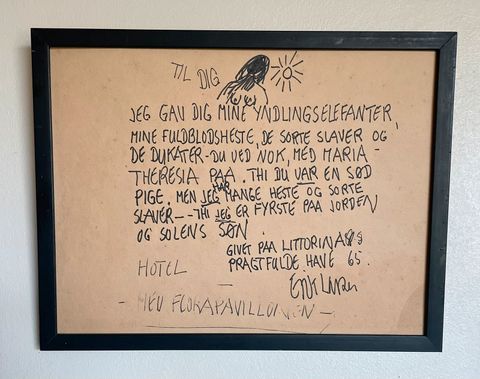 TIL DIG
JEG GAV DIG MINE YNDLINGSELEFANTER,
MINE FULDBLODSHESTE, DE SORTE SLAVER OG
DE DUKATER - DU VED NOK, MED MARIA -
THERESIA PAA. THI DU VAR EN SØD
PIGE, MEN JEG HAR MANGE HESTE OG SORTE
SLAVER -- THI JEG ER FYRSTE PAA JORDEN
OG SOLENS SØN.
GIVET PAA LITTORINAS
PRAGTFULDE HAVE 65.
HOTEL
- MEU FLORAPAVILLONEN -